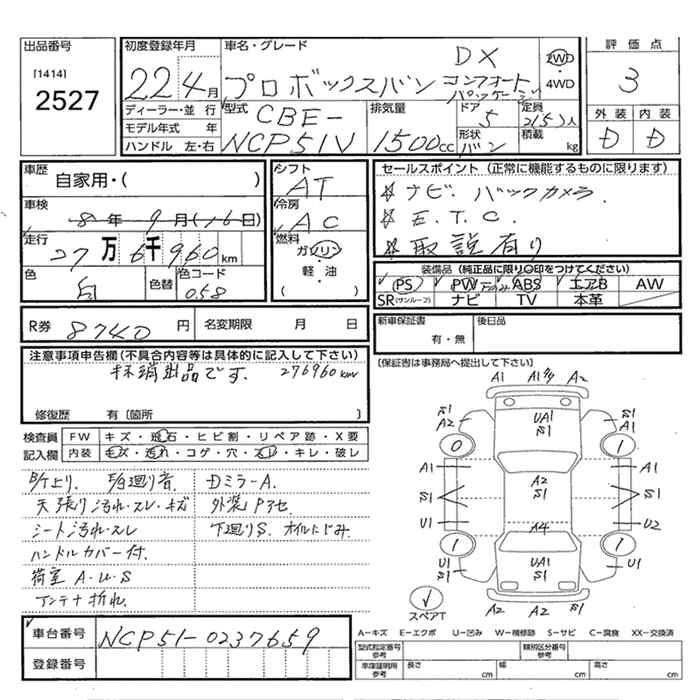 出品番号
[1414]
2527
初度登録年月
22年 4月
ディーラー・並 行
モデル年式 年
ハンドル 左・右
車名・グレード
DX
プロボックスバン コンフォート
パッケージ
2WD
4WD
型式
CBE-
NCP51V
排気量
1500cc
ドア
5
定員
2(5)人
形状
バン
積載
kg
評 価 点
3
外 装
内 装
D
D
車歴
自家用・( )
車検
8年 9月(16日)
走行
27万6千960km
色
白
色替
色コード
058
シフト
AT
冷房
AC
燃料
ガソリン
軽・油
( )
セールスポイント (正常に機能するものに限ります)
※ナビ. バックカメラ.
※E.T.C.
※取説有り
装備品 (純正品に限り○印をつけてください)
PS
PW
ABS
エアB
AW
SR(サンルーフ)
ナビ
TV
本革
R券 8740 円
名変期限 月 日
新車保証書
有・無
後日品
[保証書は事務局へ提出して下さい]
注意事項申告欄(不具合内容等は具体的に記入して下さい)
抹消出品です. 276960km
修復歴 有〔箇所 〕
検査員
記入欄
FW キズ・飛石・ヒビ割・リペア跡・X要
内装 キズ・汚れ・コゲ・穴・スレ・キレ・破レ
B/T上り. E/G廻り音. Dミラー A.
天張り汚れ・スレ・キズ 外装Pアセ
シート汚れ・スレ 下廻りS. オイルにじみ.
ハンドルカバー付.
荷室 A・U・S
アンテナ折れ.
A1 A1 A2
S1
A2
UA1
S1
S1
A1
0
1
A1
A2
S1
A1
S1
S1
U1
A4
U2
1
1
U1
S1
UA1
S1
U1
S1
A2 A2 A2
スペアT
A-キズ E-エクボ U-凹み W-補修跡 S-サビ C-腐食 XX-交換済
車台番号
NCP51-0237659
登録番号
型式指定番号
参考
類別区分番号
参考
車庫証明用
参考
長さ cm
幅 cm
高さ cm